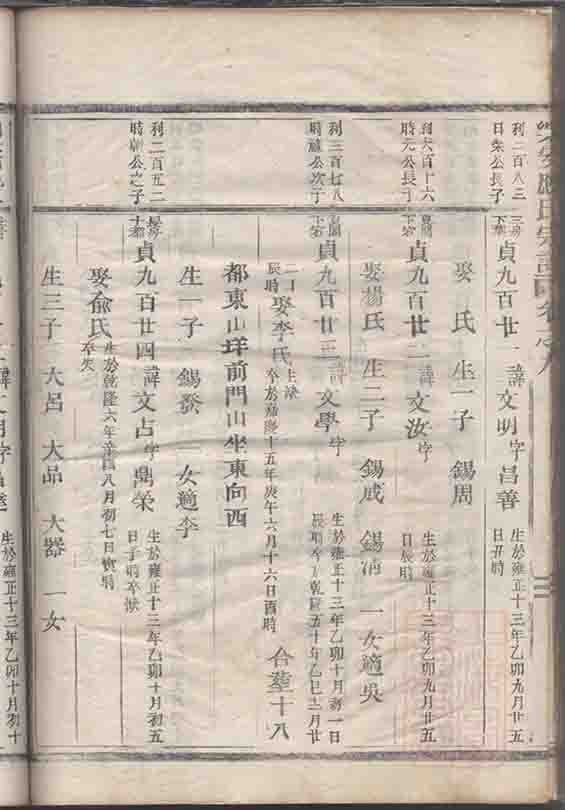 氏宗譜卷之八
利二百八三
日榮公長子
貞九百廿
諱文明字昌善
生於雍正十三年乙卯九月廿五
日丑時
娶 氏 生一子 錫周
利六百十六
時元公長子
貞九百廿二
諱文汝字
生於雍正十三年乙卯九月廿五
日辰時
娶楊氏 生二子 錫咸 錫清 一女適吳
利三百七八
公次子
貞九百廿三
諱文學字
生於雍正十三年乙卯十月初一日
辰時卒於乾隆五十年乙巳二月廿
二日
辰時
娶李氏
卒於嘉慶十五年庚午六月十六日酉時
合塟十八
都東山垟前門山坐東向西
生一子 錫發 一女適李
利二百五二
時朝公之子
貞九百廿四
諱文占字鼎榮
生於雍正十三年乙卯十月初五
日子時卒候
娶俞氏
生於乾隆六年辛酉八月初七日寅時
卒失
生三子 大呂 大品 大器 一女
生於雍正十三年乙卯十月初十